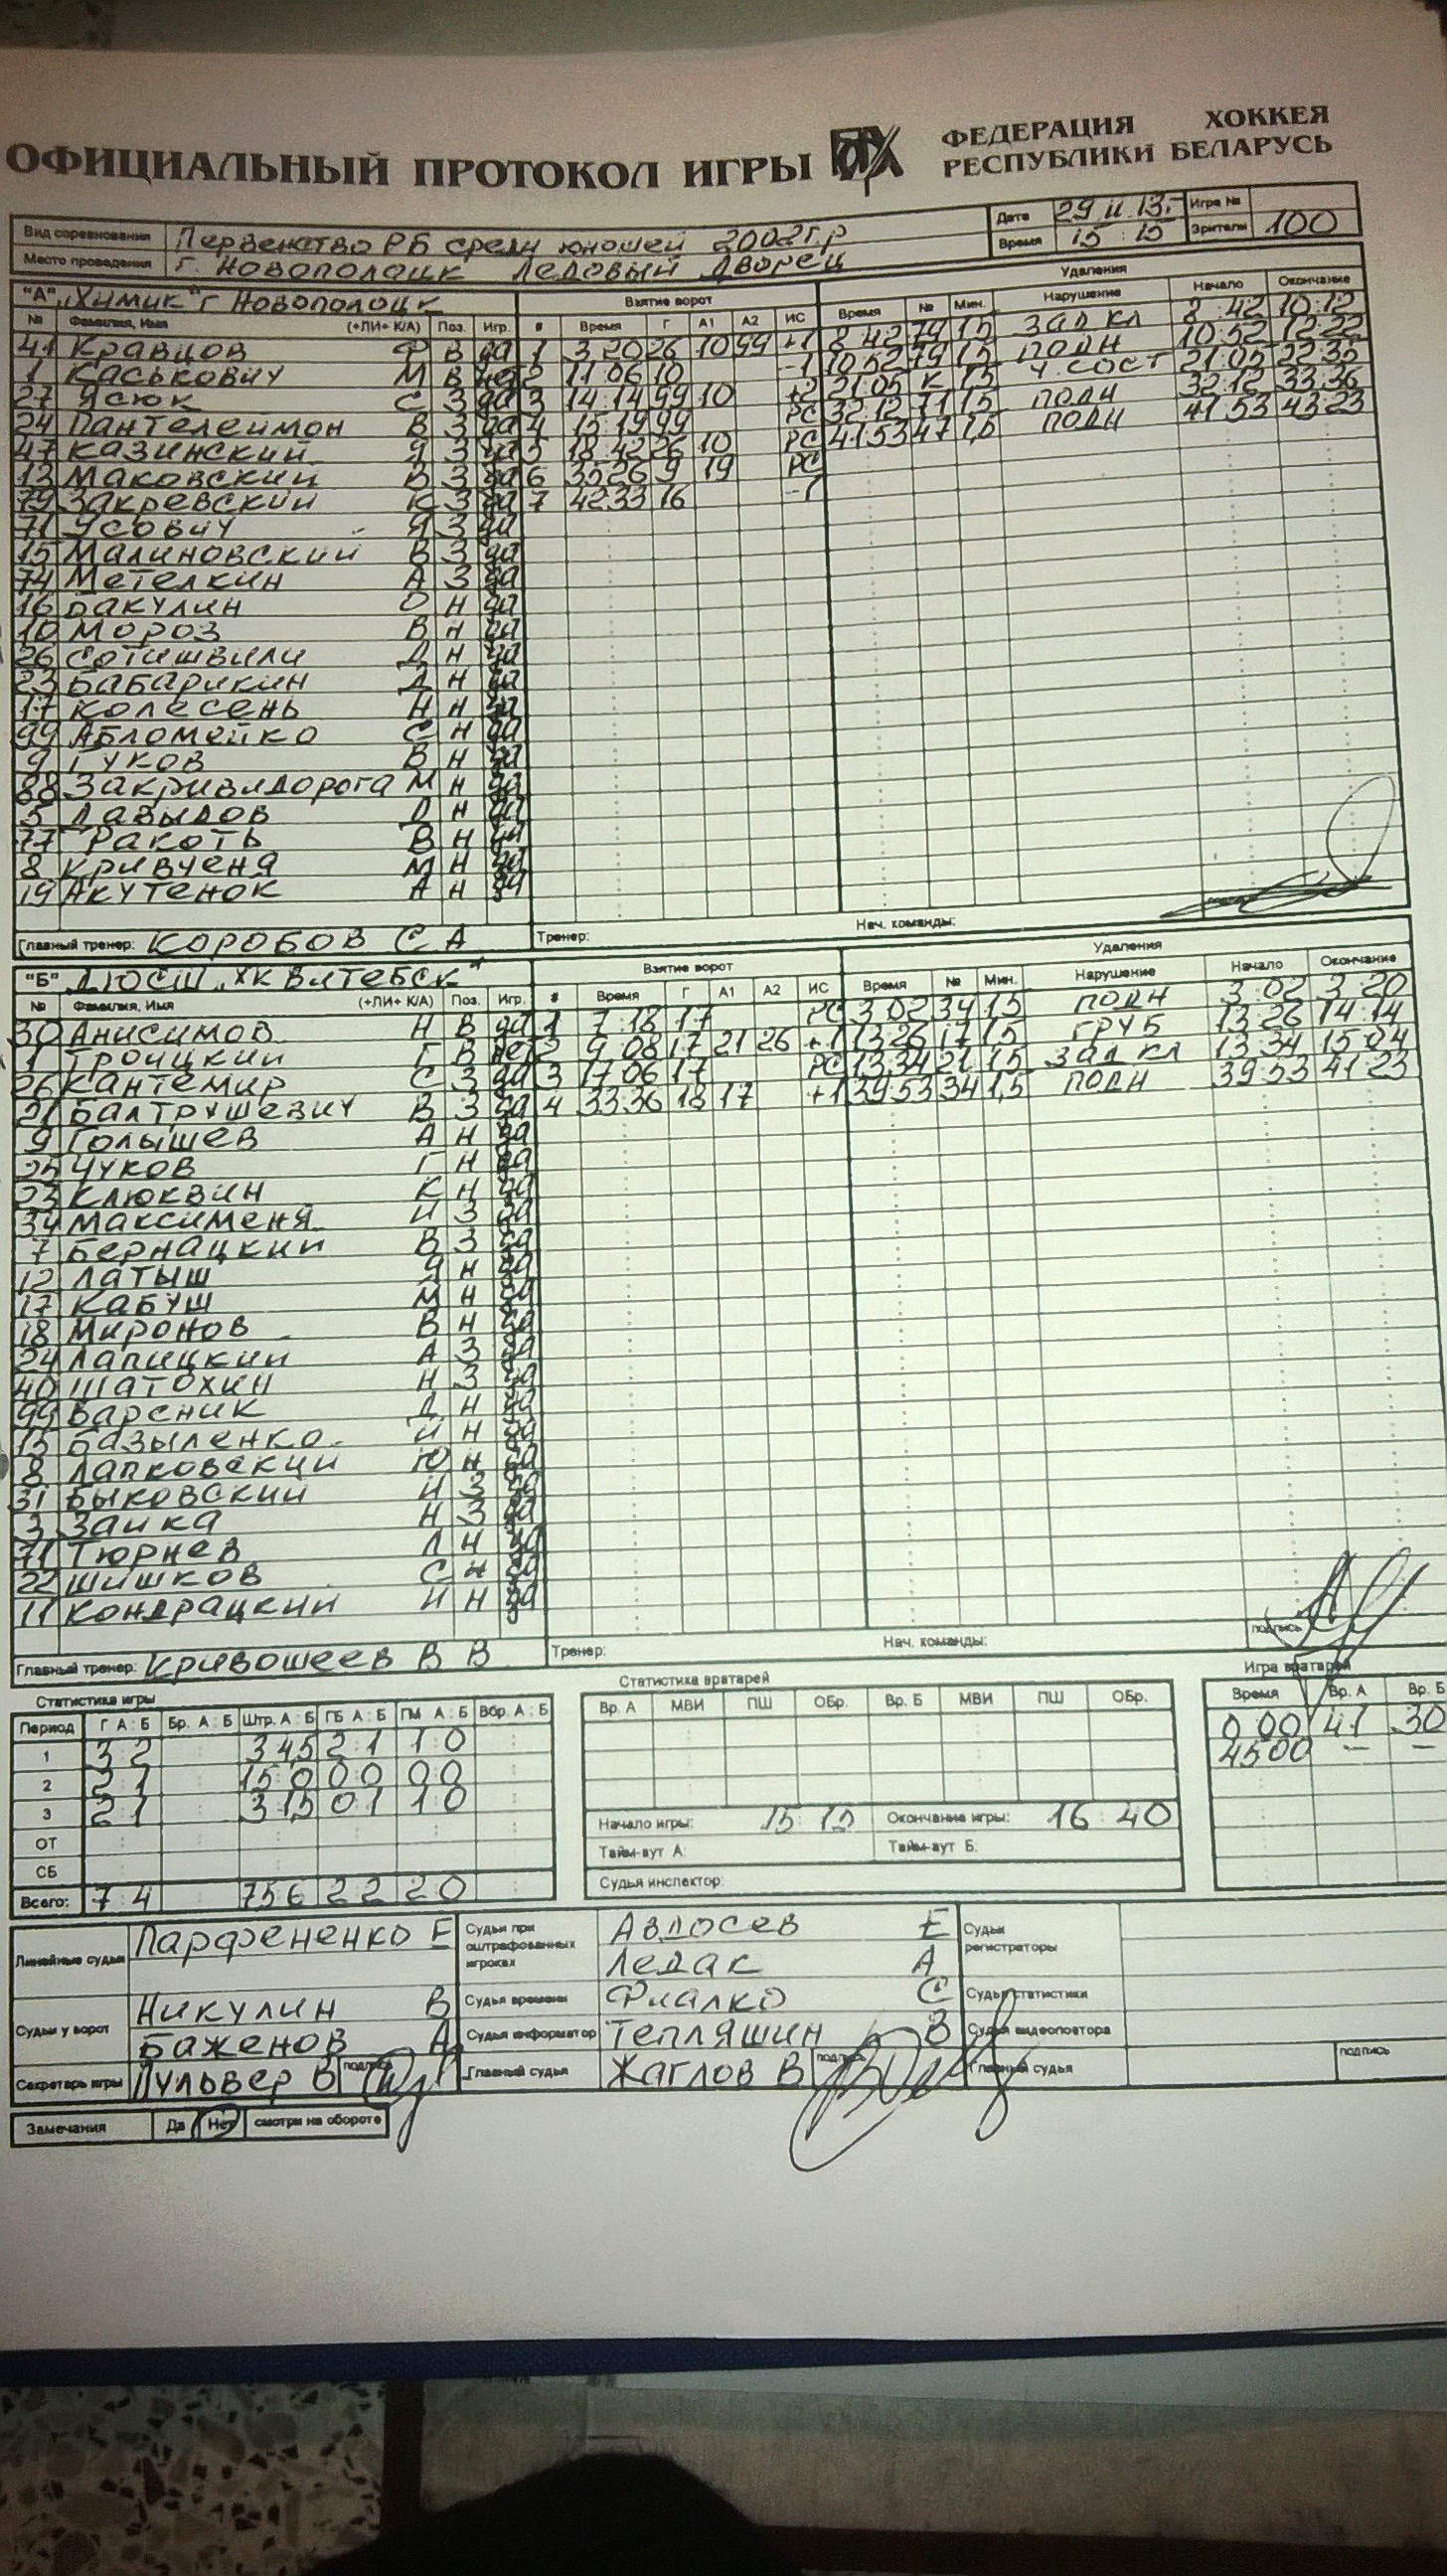 ОФИЦИАЛЬНЫЙ ПРОТОКОЛ ИГРЫ ФЕДЕРАЦИЯ ХОККЕЯ РЕСПУБЛИКИ БЕЛАРУСЬ
Вид соревнования Первенство РБ среди юношей 2002г.р Дата 29 11 13г Игра №
Место проведения г. Новополоцк Ледовый Дворец Время 15:15 Зрители 100
"А" "Химик" г Новополоцк Взятие ворот Удаления
№ Фамилия, Имя (+ЛИ+ К/А) Поз. Игр. # Время Г А1 А2 ИС Время № Мин. Нарушение Начало Окончание
41 Кравцов Ф В да 1 3 20 26 10 99 +1 8 42 79 1,5 ЗАД КЛ 8:42 10:12
1 Каськович М В нет 2 11 06 10 -1 10 52 79 1,5 ПОДН 10:52 12:22
27 Усюк С З да 3 14:14 99 10 +2 21:05 К 1,5 Ч. СОСТ 21:05 22:35
24 Пантелеймон В З да 4 15 19 99 РС 32 12 71 1,5 ПОДН 32:12 33:36
47 Казинский Я З да 5 18 42 26 10 РС 41 53 47 1,5 ПОДН 41 53 43 23
13 Маковский В З да 6 35 26 9 19 РС
79 Закревский К З да 7 42 33 16 -1
71 Усович Я З да
15 Малиновский В З да
74 Метелкин А З да
16 Бакулин О Н да
10 Мороз В Н да
26 Сотишвили Д Н да
23 Бабарикин Д Н да
17 Колесень Н Н да
99 Абломейко С Н да
9 Гуков В Н да
88 Закривидорога М Н да
5 Давыдов Д Н да
77 Ракоть В Н да
8 Кривченя М Н да
19 Акутенок А Н да
Главный тренер: КОРОБОВ С А Тренер: Нач. команды:
"Б" ДЮСШ "ХК Витебск" Взятие ворот Удаления
№ Фамилия, Имя (+ЛИ+ К/А) Поз. Игр. # Время Г А1 А2 ИС Время № Мин. Нарушение Начало Окончание
30 Анисимов Н В да 1 7:18 17 РС 3 02 34 1,5 ПОДН 3 02 3 20
1 Троицкий Г В нет 2 9:08 17 21 26 +1 13 26 17 1,5 ГРУБ 13 26 14 14
26 Кантемир С З да 3 17 06 17 РС 13,34 21 1,5 ЗАД КЛ 13 34 15 04
21 Балтрушевич В З да 4 33 36 18 17 +1 39 53 34 1,5 ПОДН 39 53 41 23
9 Голышев А Н да
25 Чуков Г Н да
23 Клюквин К Н да
34 Максименя И З да
7 Бернацкий В З да
12 Латыш Я Н да
17 Кабуш М Н да
18 Миронов В Н да
24 Лапицкий А З да
40 Шатохин Н З да
99 Варсник Д Н да
15 Базыленко И Н да
8 Лапковский Ю Н да
31 Быковский И З да
3 Заика Н З да
71 Тюрнев Л Н да
22 Шишков С Н да
11 Кондрацкий И Н да
подпись
Главный тренер: Кривошеев В В Тренер: Нач. команды:
Статистика игры Статистика вратарей Игра вратарей
Период Г А:Б Бр. А:Б Штр. А:Б ГБ А:Б ГМ А:Б Вбр. А:Б Вр. А МВИ ПШ ОБр. Вр. Б МВИ ПШ ОБр. Время Вр. А Вр. Б
1 3 2 3 4,5 2 1 1 0 0 00 41 30
2 2 1 1,5 0 0 0 0 0 45 00 – –
3 2 1 3 1,5 0 1 1 0
ОТ
СБ
Всего: 7 4 7,5 6 2 2 2 0
Начало игры: 15 15 Окончание игры: 16 40
Тайм-аут А: Тайм-аут Б:
Судья инспектор:
Линейные судьи Парфененко Е Судьи при оштрафованных игроках Авдосев Е Судьи регистраторы
Ледак А
Судьи у ворот Никулин В Судья времени Фиалко С Судья статистики
Баженов А Судья информатор Тепляшин В Судья видеоповтора
Секретарь игры Пульвер В подпись Главный судья Жаглов В подпись Главный судья подпись
Замечания Да Нет смотри на обороте